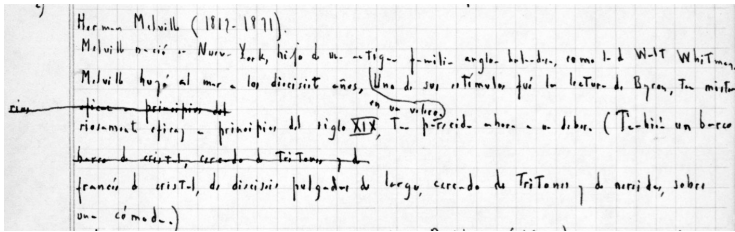 Herman Melville (1819-1891).
Melville nació en Nueva York, hijo de una antigua familia anglo-holandesa, como la de Walt Whitman.
Melville huyó al mar a los diecisiete años, Uno de sus estímulos fué la lectura de Byron, Tan misterio
en un velero.
rios eficaz a principios del
riosamente eficaz a principios del siglo XIX, Tan parecida ahora a un deber. (También un barco
barco de cristal, cercado de Tritones y de
francés de cristal, de dieciseis pulgadas de largo, cercado de Tritones y de nereidas, sobre
una cómoda.)